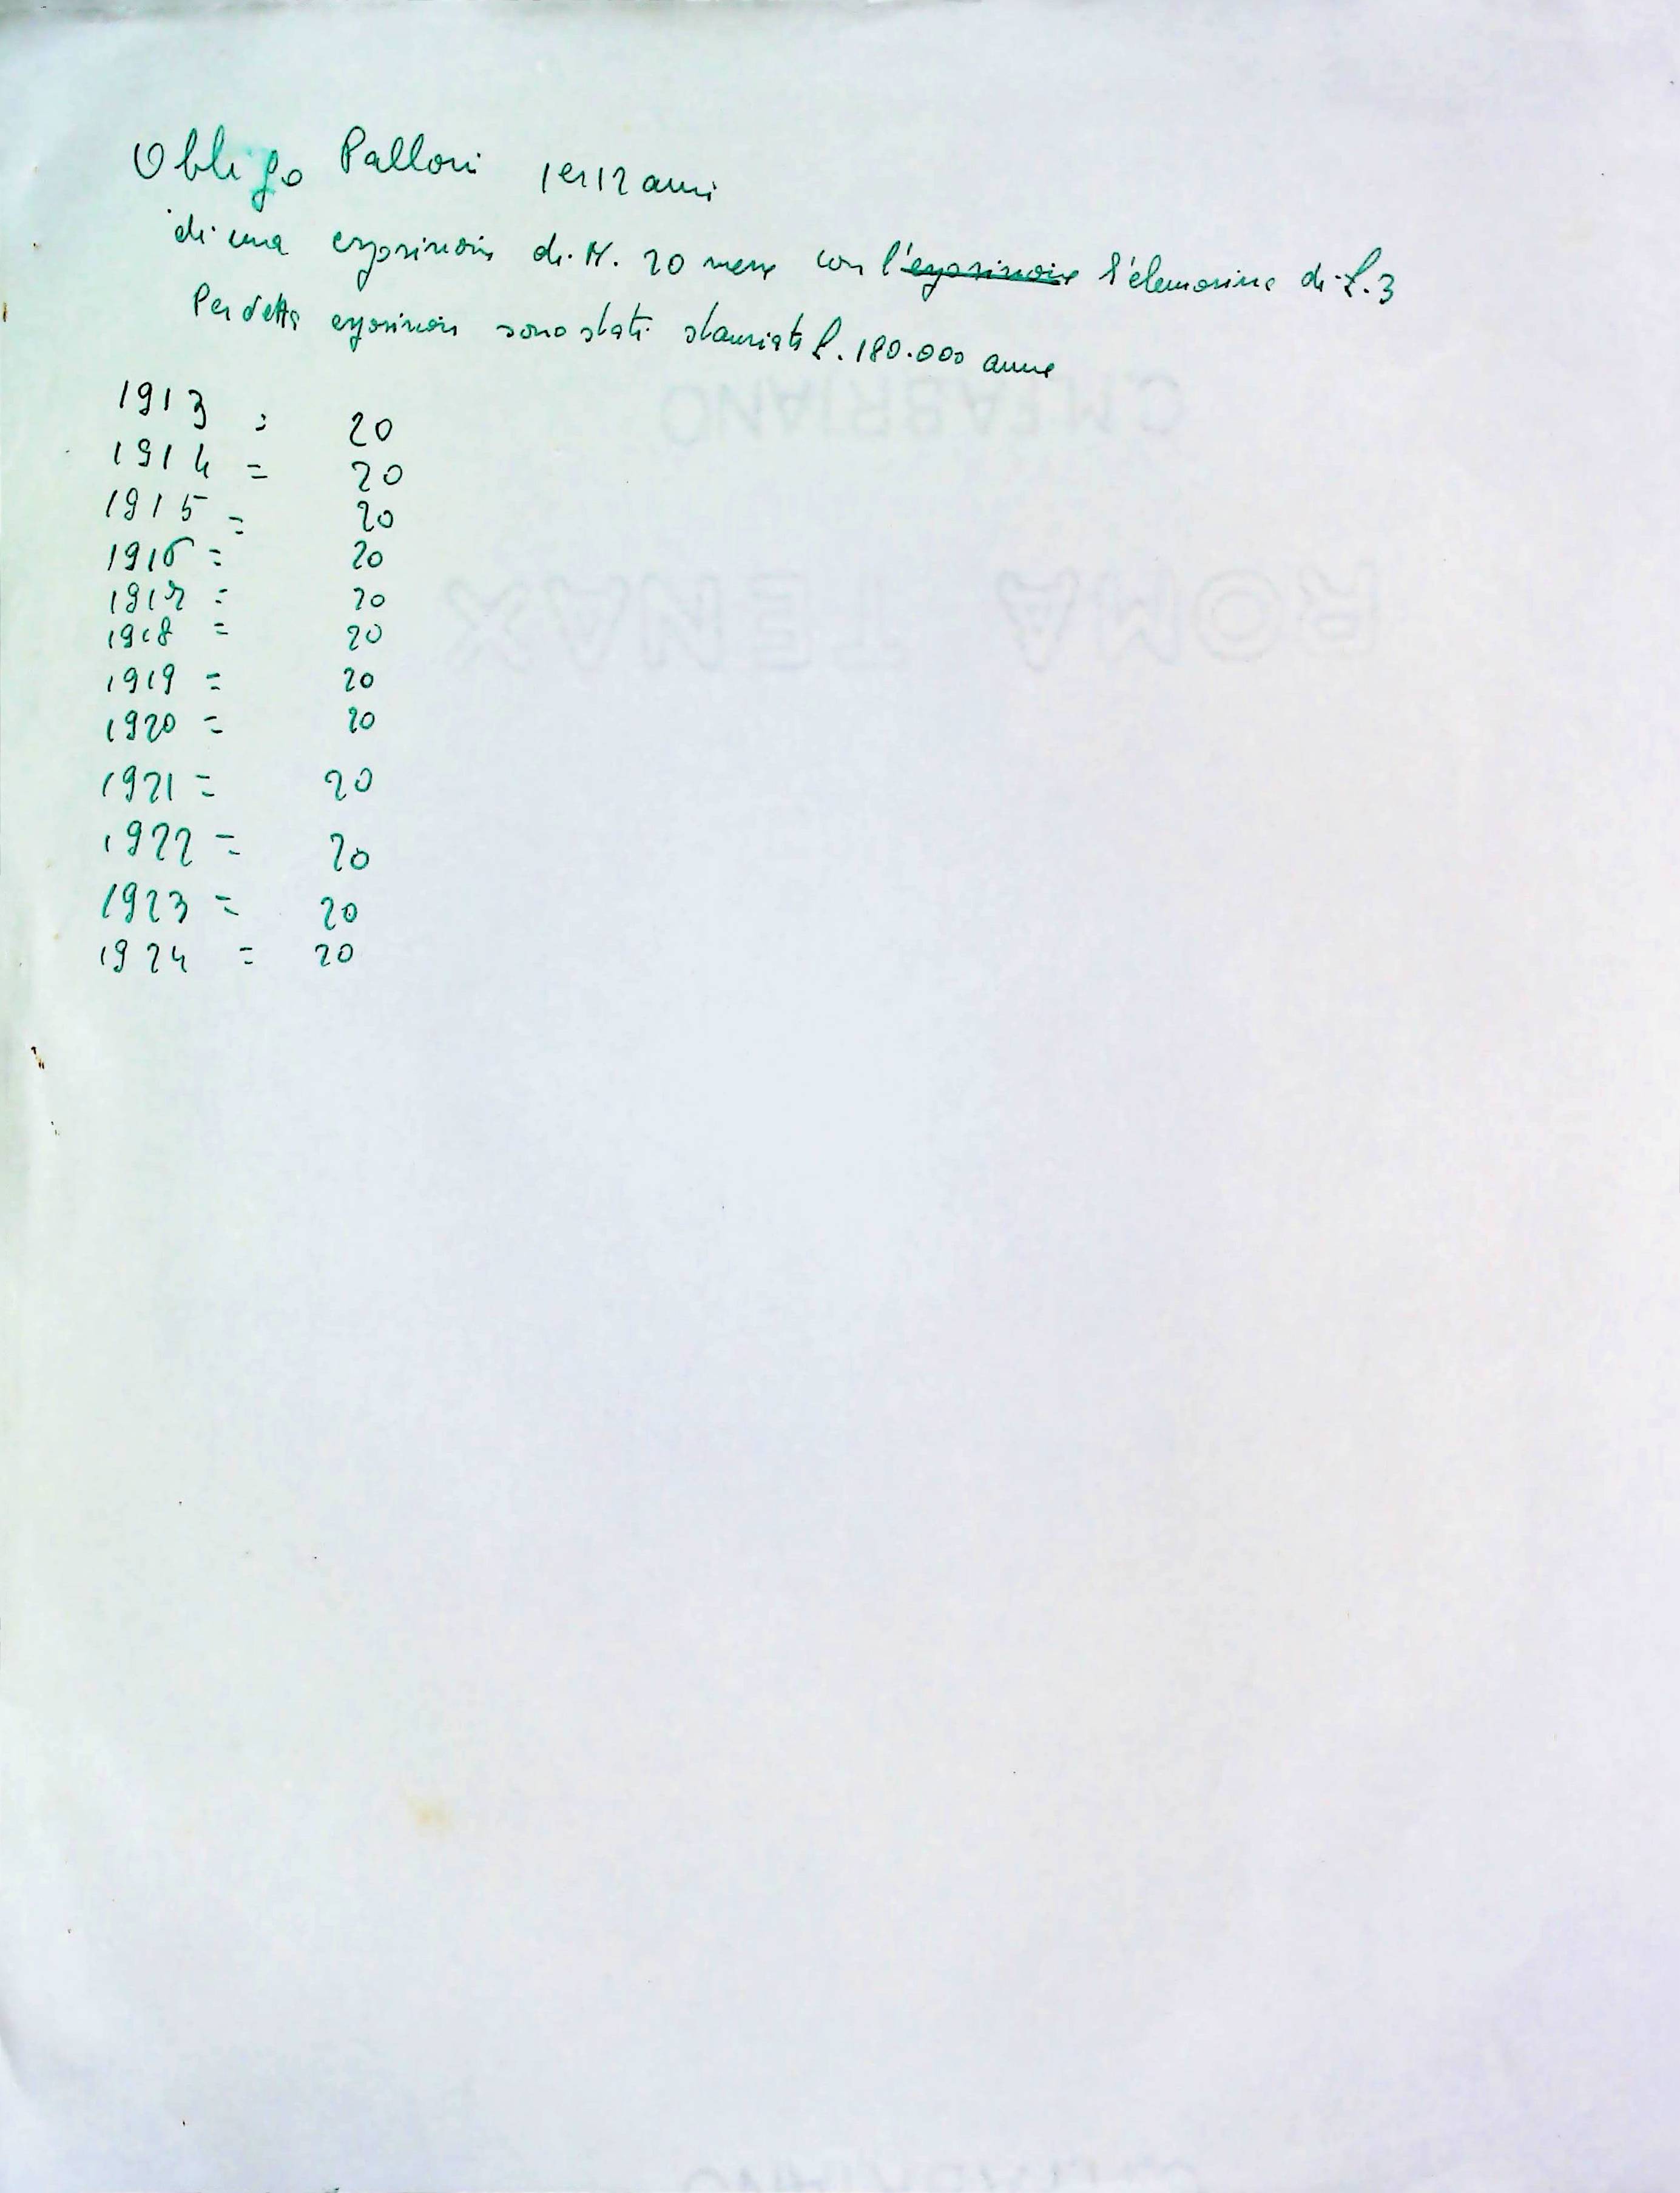 Obbligo Palloni per 12 anni
di una esposizione di N. 20 messe con l'esposizione l'elemosina di L. 3
Per detta esposizione sono stati stanziati L. 180.000 annue
1913 = 20
1914 = 20
1915 = 20
1916 = 20
1917 = 20
1918 = 20
1919 = 20
1920 = 20
1921 = 20
1922 = 20
1923 = 20
1924 = 20
C.M.FABRIANO
ROMA TENAX